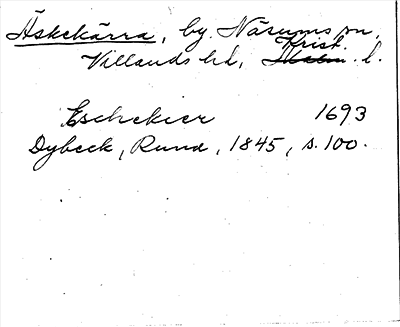 Äskekärra, by. Näsums sn,
Villands hd, Krist. l.
Eschekier 1693
Dybeck, Runa, 1845, s. 100.